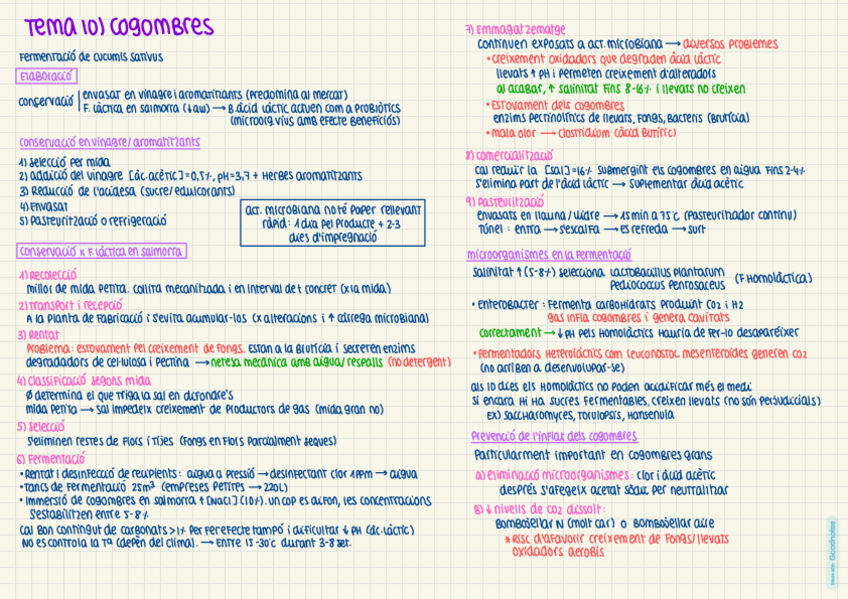 Tema 10) Cogombres
Fermentació de cucumis sativus
Elaboració
conservació envasar en vinagre i aromatitzants (predomina al mercat)
F. làctica en salmorra (↓aw) → B. àcid làctic actuen com a probiòtics
(microorg. vius amb efecte beneficiós)
conservació en vinagre/aromatitzants
1) selecció per mida
2) addició del vinagre [àc. acètic] = 0,5%, pH=3,7 + herbes aromatitzants
3) Reducció de l'acidesa (sucre/edulcorants)
4) Envasar
5) Pasteurització o refrigeració
act. microbiana no té paper rellevant
ràpid: 1 dia pel producte + 2-3
dies d'impregnació
Conservació x F. làctica en salmorra
1) Recolecció
millor de mida petita. collita mecanitzada i en interval de t concret (x la mida)
2) Transport i recepció
A la planta de fabricació i s'evita acumular-los (x alteracions i ↑ càrrega microbiana)
3) Rentat
Problema: estovament pel creixement de fongs. Estan a la brutícia i secreten enzims
degradadors de cel·lulosa i pectina → neteja mecànica amb aigua/respalls (no detergent)
4) Classificació segons mida
Ø determina el que triga la sal en difondre's
mida petita → sal impedeix creixement de productors de gas (mida gran no)
5) Selecció
s'eliminen restes de flors i tijes (Fongs en flors parcialment seques)
6) Fermentació
• Rentat i desinfecció de recipients: aigua a pressió → desinfectant clor 1ppm → aigua
• Tancs de fermentació 25m³ (empreses petites → 220L)
• Immersió de cogombres en salmorra ↑[NaCl] (10%). un cop es difon, les concentracions
s'estabilitzen entre 5-8%
Cal bon contingut de carbonats >1% per fer efecte tampó i dificultar ↓pH (àc. làctic)
No es controla la Tª (depèn del clima). → Entre 15-30ºC durant 3-8 set.
7) Emmagatzematge
continuen exposats a act. microbiana → diversos problemes
• creixement oxidadors que degraden àcid làctic
llevats ↑pH i permeten creixement d'alteradors
al acabar, ↑ salinitat fins 8-16% i llevats no creixen
• Estovament dels cogombres
enzims pectinolítics de llevats, fongs, bacteris (brutícia)
• mala olor → clostridium (àcid butíric)
8) comercialització
cal reduir la [sal]=16% submergint els cogombres en aigua fins 2-4%
s'elimina part de l'àcid làctic → suplementar àcid acètic
9) Pasteurització
envasats en llauna/vidre → 15min a 75ºC (pasteuritzador continu)
túnel: entra → s'escalfa → es refreda → surt
microorganismes en la fermentació
salinitat ↑(5-8%) selecciona Lactobacillus plantarum
Pediococcus pentosaceus (F. homolàctica)
• Enterobacter: fermenta carbohidrats produint CO2 i H2
gas infla cogombres i genera cavitats
correctament → ↓pH pels homolàctics hauria de fer-lo desaparèixer
• Fermentadors heterolàctics com leuconostoc mesenteroides generen CO2
(no arriben a desenvolupar-se)
als 10 dies els homolàctics no poden acidificar més el medi
si encara hi ha sucres fermentables, creixen llevats (no són perjudicials)
Ex) Saccharomyces, Torulopsis, Hansenula
Prevenció de l'inflat dels cogombres
Particularment important en cogombres grans
a) eliminació microorganismes: clor i àcid acètic
després s'afegeix acetat sòdic per neutralitzar
B) ↓ nivells de CO2 dissolt:
Bombollejar N (molt car) o bombollejar aire
* Risc d'afavorir creixement de fongs/llevats
oxidadors aerobis
Made with Goodnotes